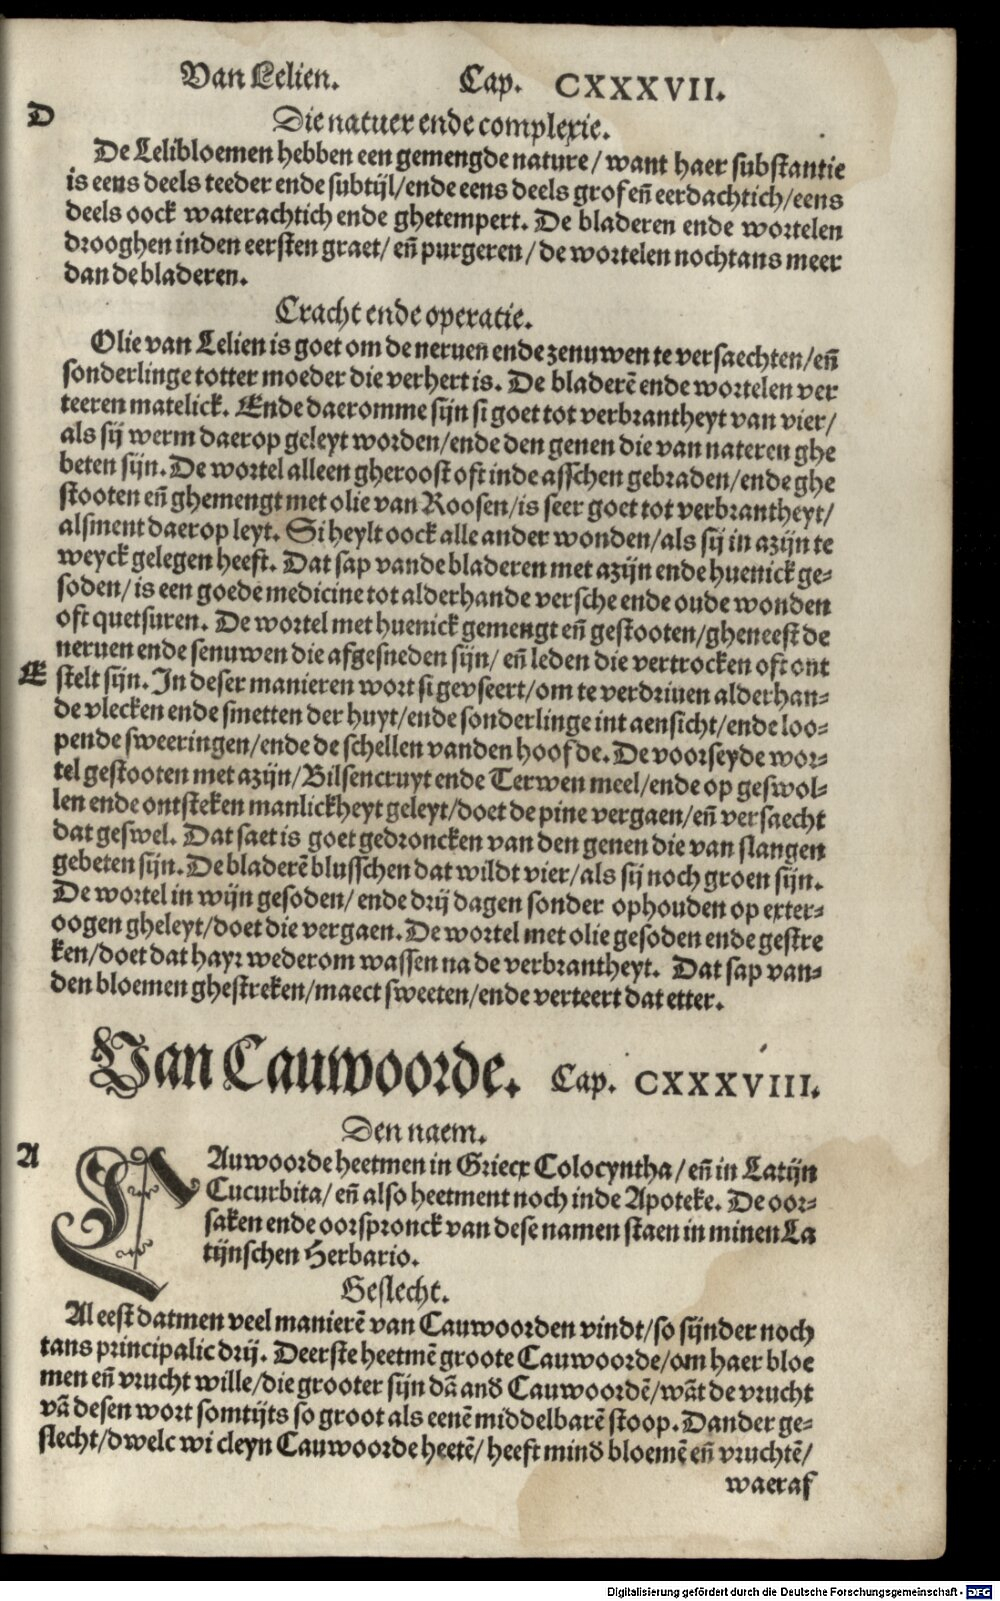 Van Lelien. Cap. CXXXVII.
D
Die natuer ende complexie.
De Lelibloemen hebben een gemengde nature/ want haer substantie
is eens deels teeder ende subtijl/ende eens deels grof eñ eerdachtich/eens
deels oock waterachtich ende ghetempert. De bladeren ende wortelen
drooghen inden eersten graet/ eñ purgeren/ de wortelen nochtans meer
dan de bladeren.
Cracht ende operatie.
Olie van Lelien is goet om de neruen ende zenuwen te versaechten/eñ
sonderlinge totter moeder die verhert is. De bladerē ende wortelen ver
teeren matelick. Ende daeromme sijn si goet tot verbrantheyt van vier/
als sij werm daer op geleyt worden/ende den genen die van nateren ghe
beten sijn. De wortel alleen gheroost oft inde asschen gebraden/ende ghe
stooten eñ ghemengt met olie van Roosen/is seer goet tot verbrantheyt/
alsment daer op leyt. Si heylt oock alle ander wonden/als sij in azijn te
weyck gelegen heeft. Dat sap vande bladeren met azijn ende huenick ge-
soden/ is een goede medicine tot alderhande versche ende oude wonden
oft quetsuren. De wortel met huenick gemengt eñ gestooten/gheneest de
neruen ende senuwen die afgesneden sijn/ eñ leden die vertrocken oft ont
E
stelt sijn. In deser manieren wort si gevseert/om te verdriuen alderhan-
de vlecken ende smetten der huyt/ende sonderlinge int aensicht/ende loo-
pende sweeringen/ende de schellen vanden hoofde. De voorseyde wor-
tel gestooten met azijn/Bilsencruyt ende Terwen meel/ende op geswol-
len ende ontsteken manlickheyt geleyt/doet de pine vergaen/eñ versaecht
dat geswel. Dat saet is goet gedroncken van den genen die van slangen
gebeten sijn. De bladerē blusschen dat wildt vier/als sij noch groen sijn.
De wortel in wijn gesoden/ ende drij dagen sonder ophouden op exter-
oogen gheleyt/doet die vergaen. De wortel met olie gesoden ende gestre
ken/doet dat hayr wederom wassen na de verbrantheyt. Dat sap van-
den bloemen ghestreken/maect sweeten/ende verteert dat etter.
Van Cauwoorde. Cap. CXXXVIII.
Den naem.
A
CAuwoorde heetmen in Griecx Colocyntha/eñ in Latijn
Cucurbita/ eñ also heetment noch inde Apoteke. De oor-
saken ende oorspronck van dese namen staen in minen La
tijnschen Herbario.
Geslecht.
Al eest datmen veel manierē van Cauwoorden vindt/so sijnder noch
tans principalic drij. Deerste heetmē groote Cauwoorde/om haer bloe
men eñ vrucht wille/die grooter sijn dā and Cauwoordē/wāt de vrucht
vā desen wort somtijts so groot als eenē middelbarē stoop. Dander ge-
slecht/dwelc wi cleyn Cauwoorde heetē/ heeft mind bloemē eñ vruchtē/
waeraf
Digitalisierung gefördert durch die Deutsche Forschungsgemeinschaft - DFG